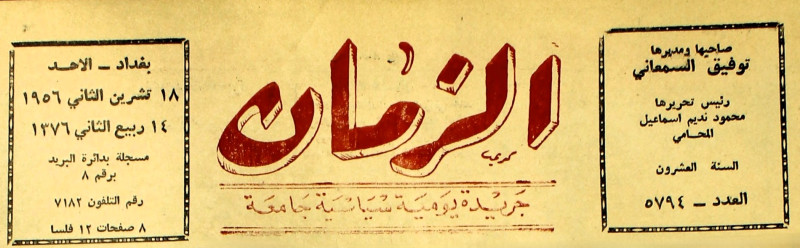 صاحبها ومديرها
توفيق السمعاني
رئيس تحريرها
محمود نديم اسماعيل
المحامي
السنة العشرون
العدد ــ ٥٧٩٤
الزمان
كريم
جريدة يومية سياسية جامعة
بغداد ــ الاحد
١٨ تشرين الثاني ١٩٥٦
١٤ ربيع الثاني ١٣٧٦
مسجلة بدائرة البريد
برقم ٨
رقم التلفون ٧١٨٢
٨ صفحات ١٢ فلسا